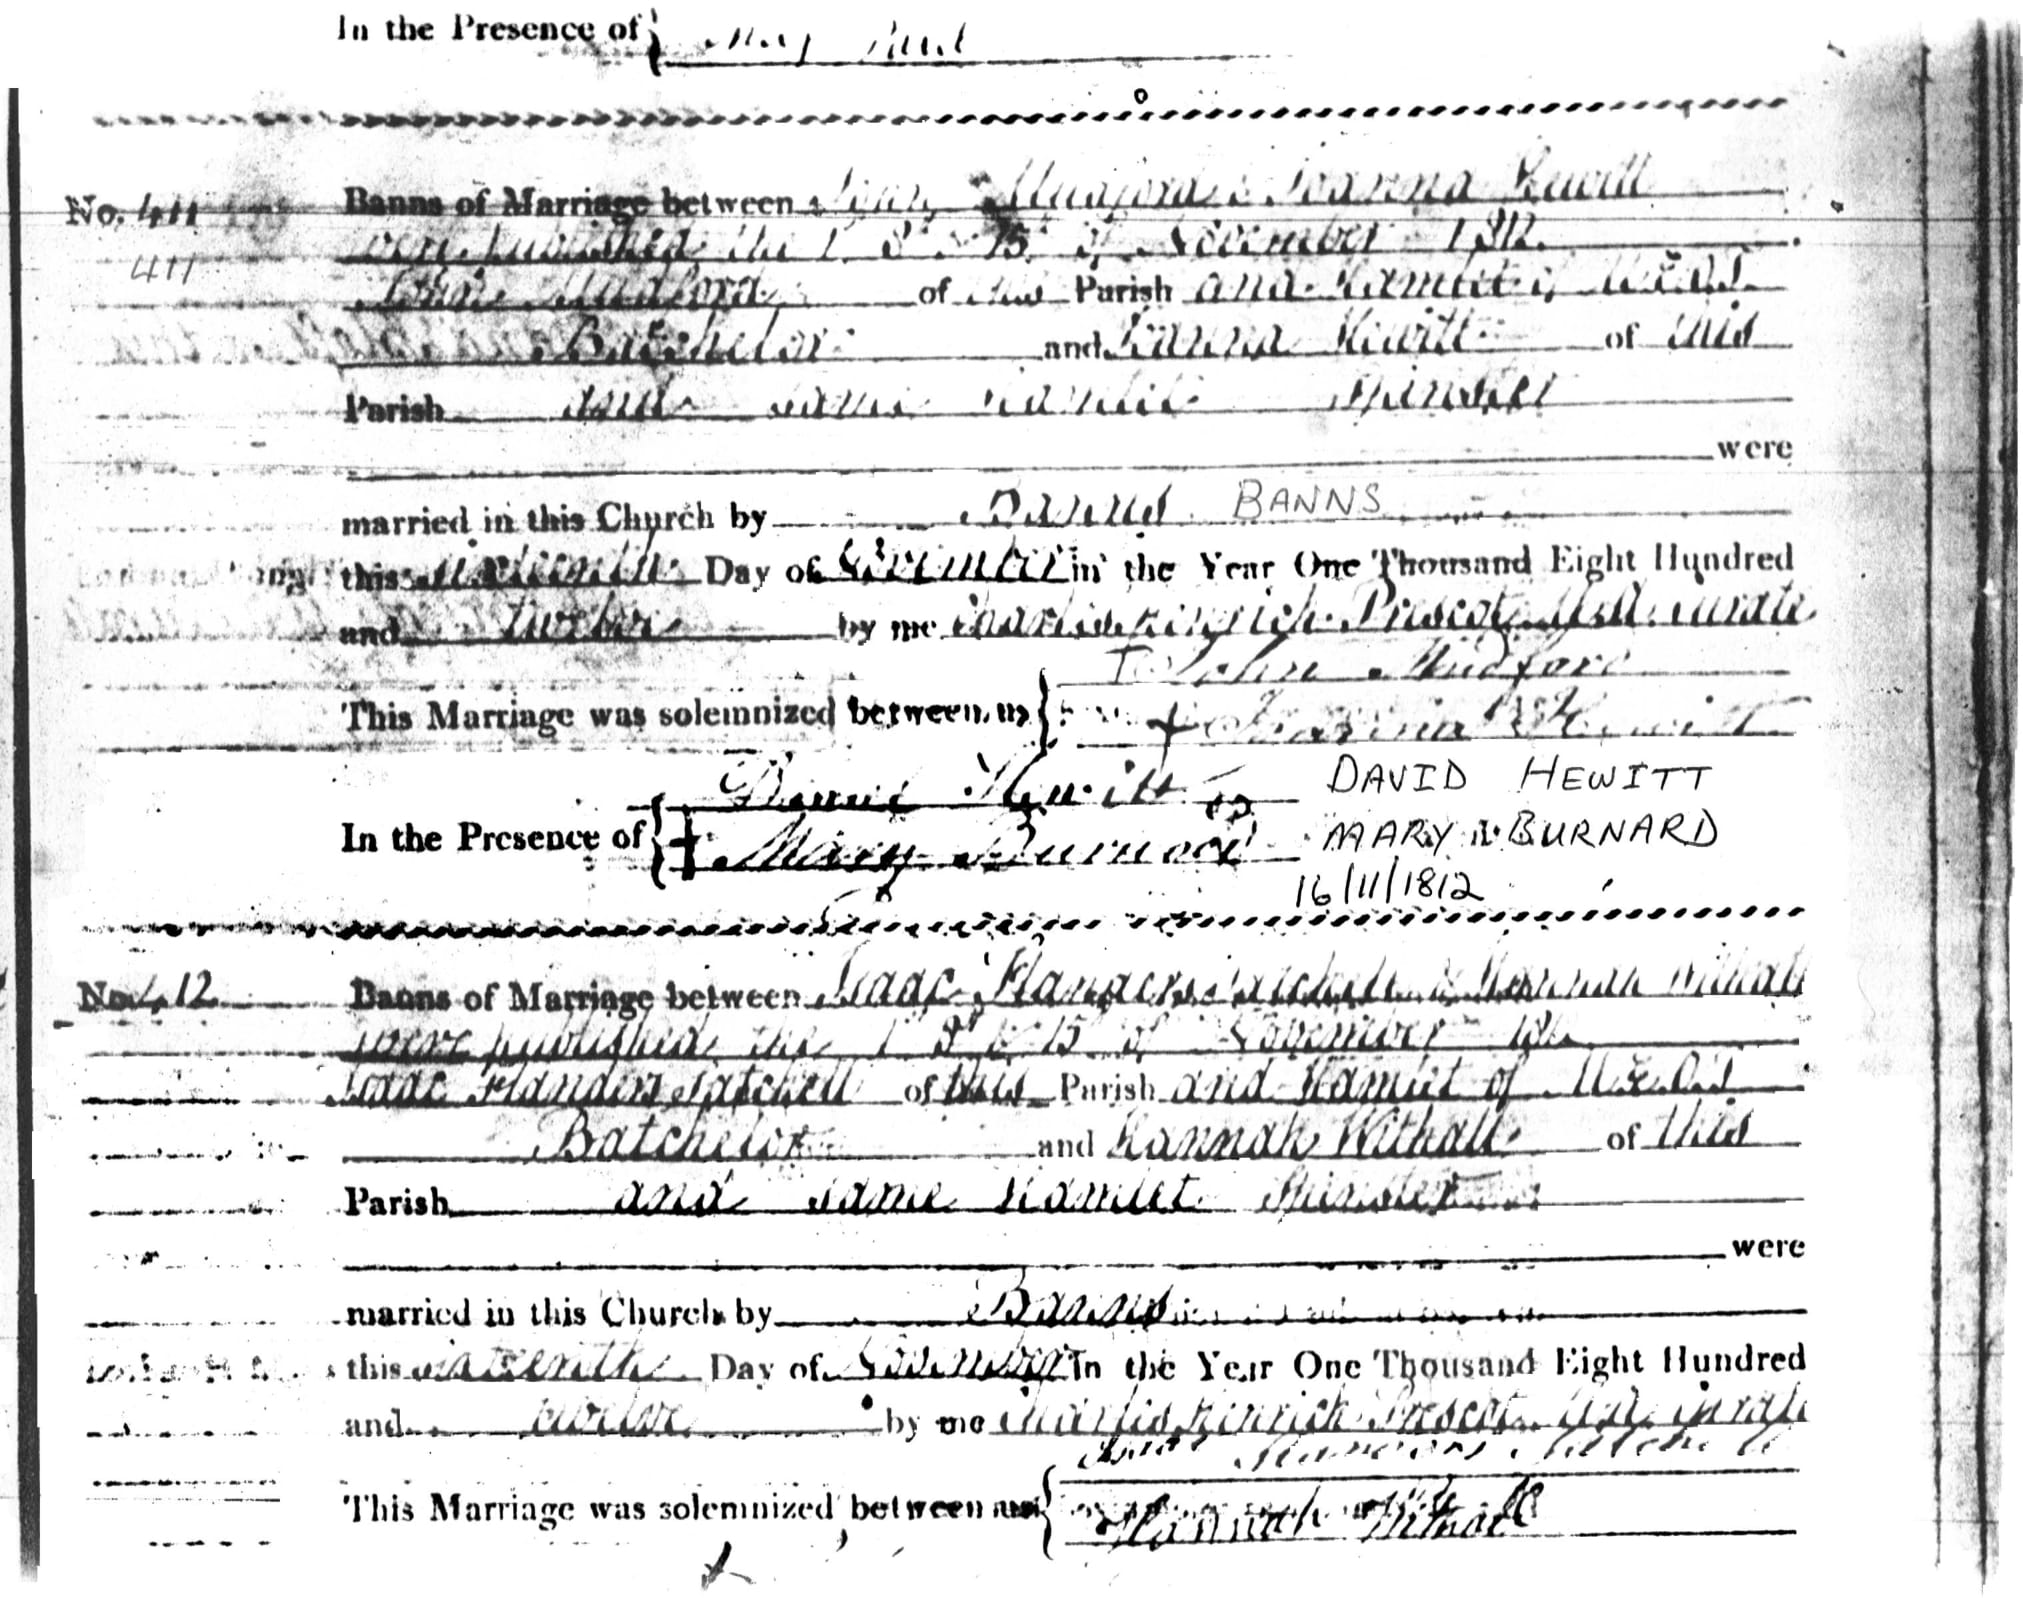 In the Presence of
No. 411 Banns of Marriage between John Mudford & Joanna Hewitt
were published the 1 8 & 15 of November 1812.
411
John Mudford of this Parish and Hamlet of
Batchelor and Joanna Hewitt of this
Parish and same Hamlet Spinster
were
married in this Church by Banns BANNS
this sixteenth Day of November in the Year One Thousand Eight Hundred
and twelve by me Charles Kenrick Prescot Curate
John Mudford
This Marriage was solemnized between us Joanna Hewitt
Hewitt DAVID HEWITT
In the Presence of Mary Burnard MARY BURNARD
16/11/1812
No. 412 Banns of Marriage between Isaac Flanders Satchell & Hannah Withall
were published the 1 8 & 15 of November 1812
Isaac Flanders Satchell of this Parish and Hamlet of
Batchelor and Hannah Withall of this
Parish and same Hamlet Spinster
were
married in this Church by Banns
this sixteenth Day of November in the Year One Thousand Eight Hundred
and twelve by me Charles Kenrick Prescot Curate
Isaac Flanders Satchell
This Marriage was solemnized between us Hannah Withall